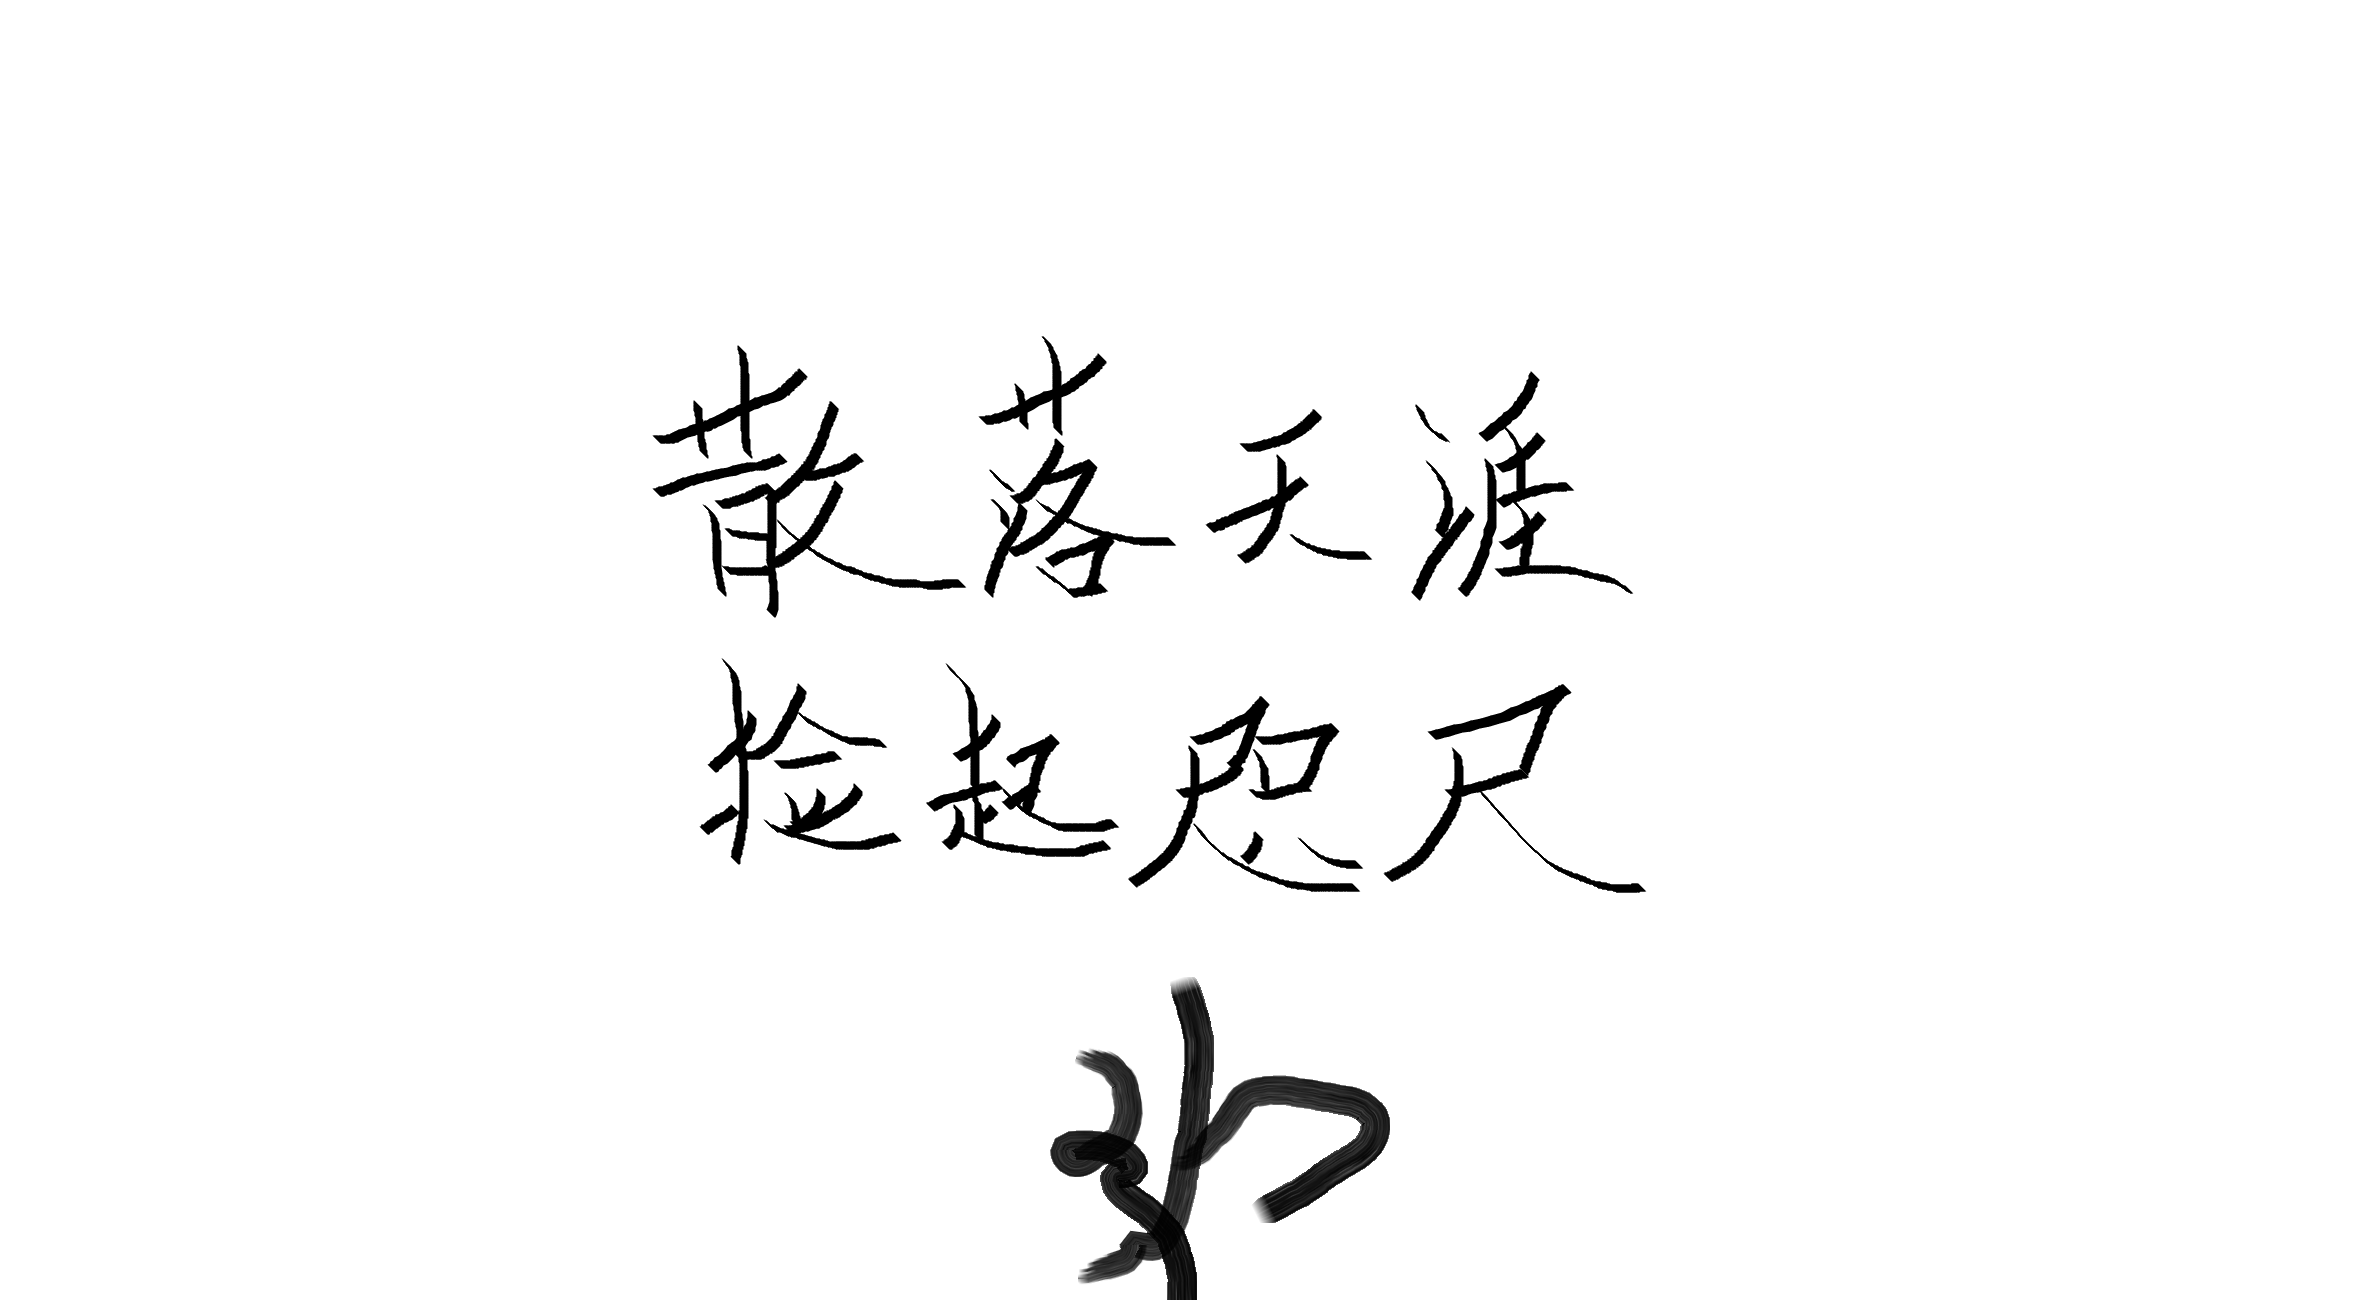 散落天涯
捡起咫尺